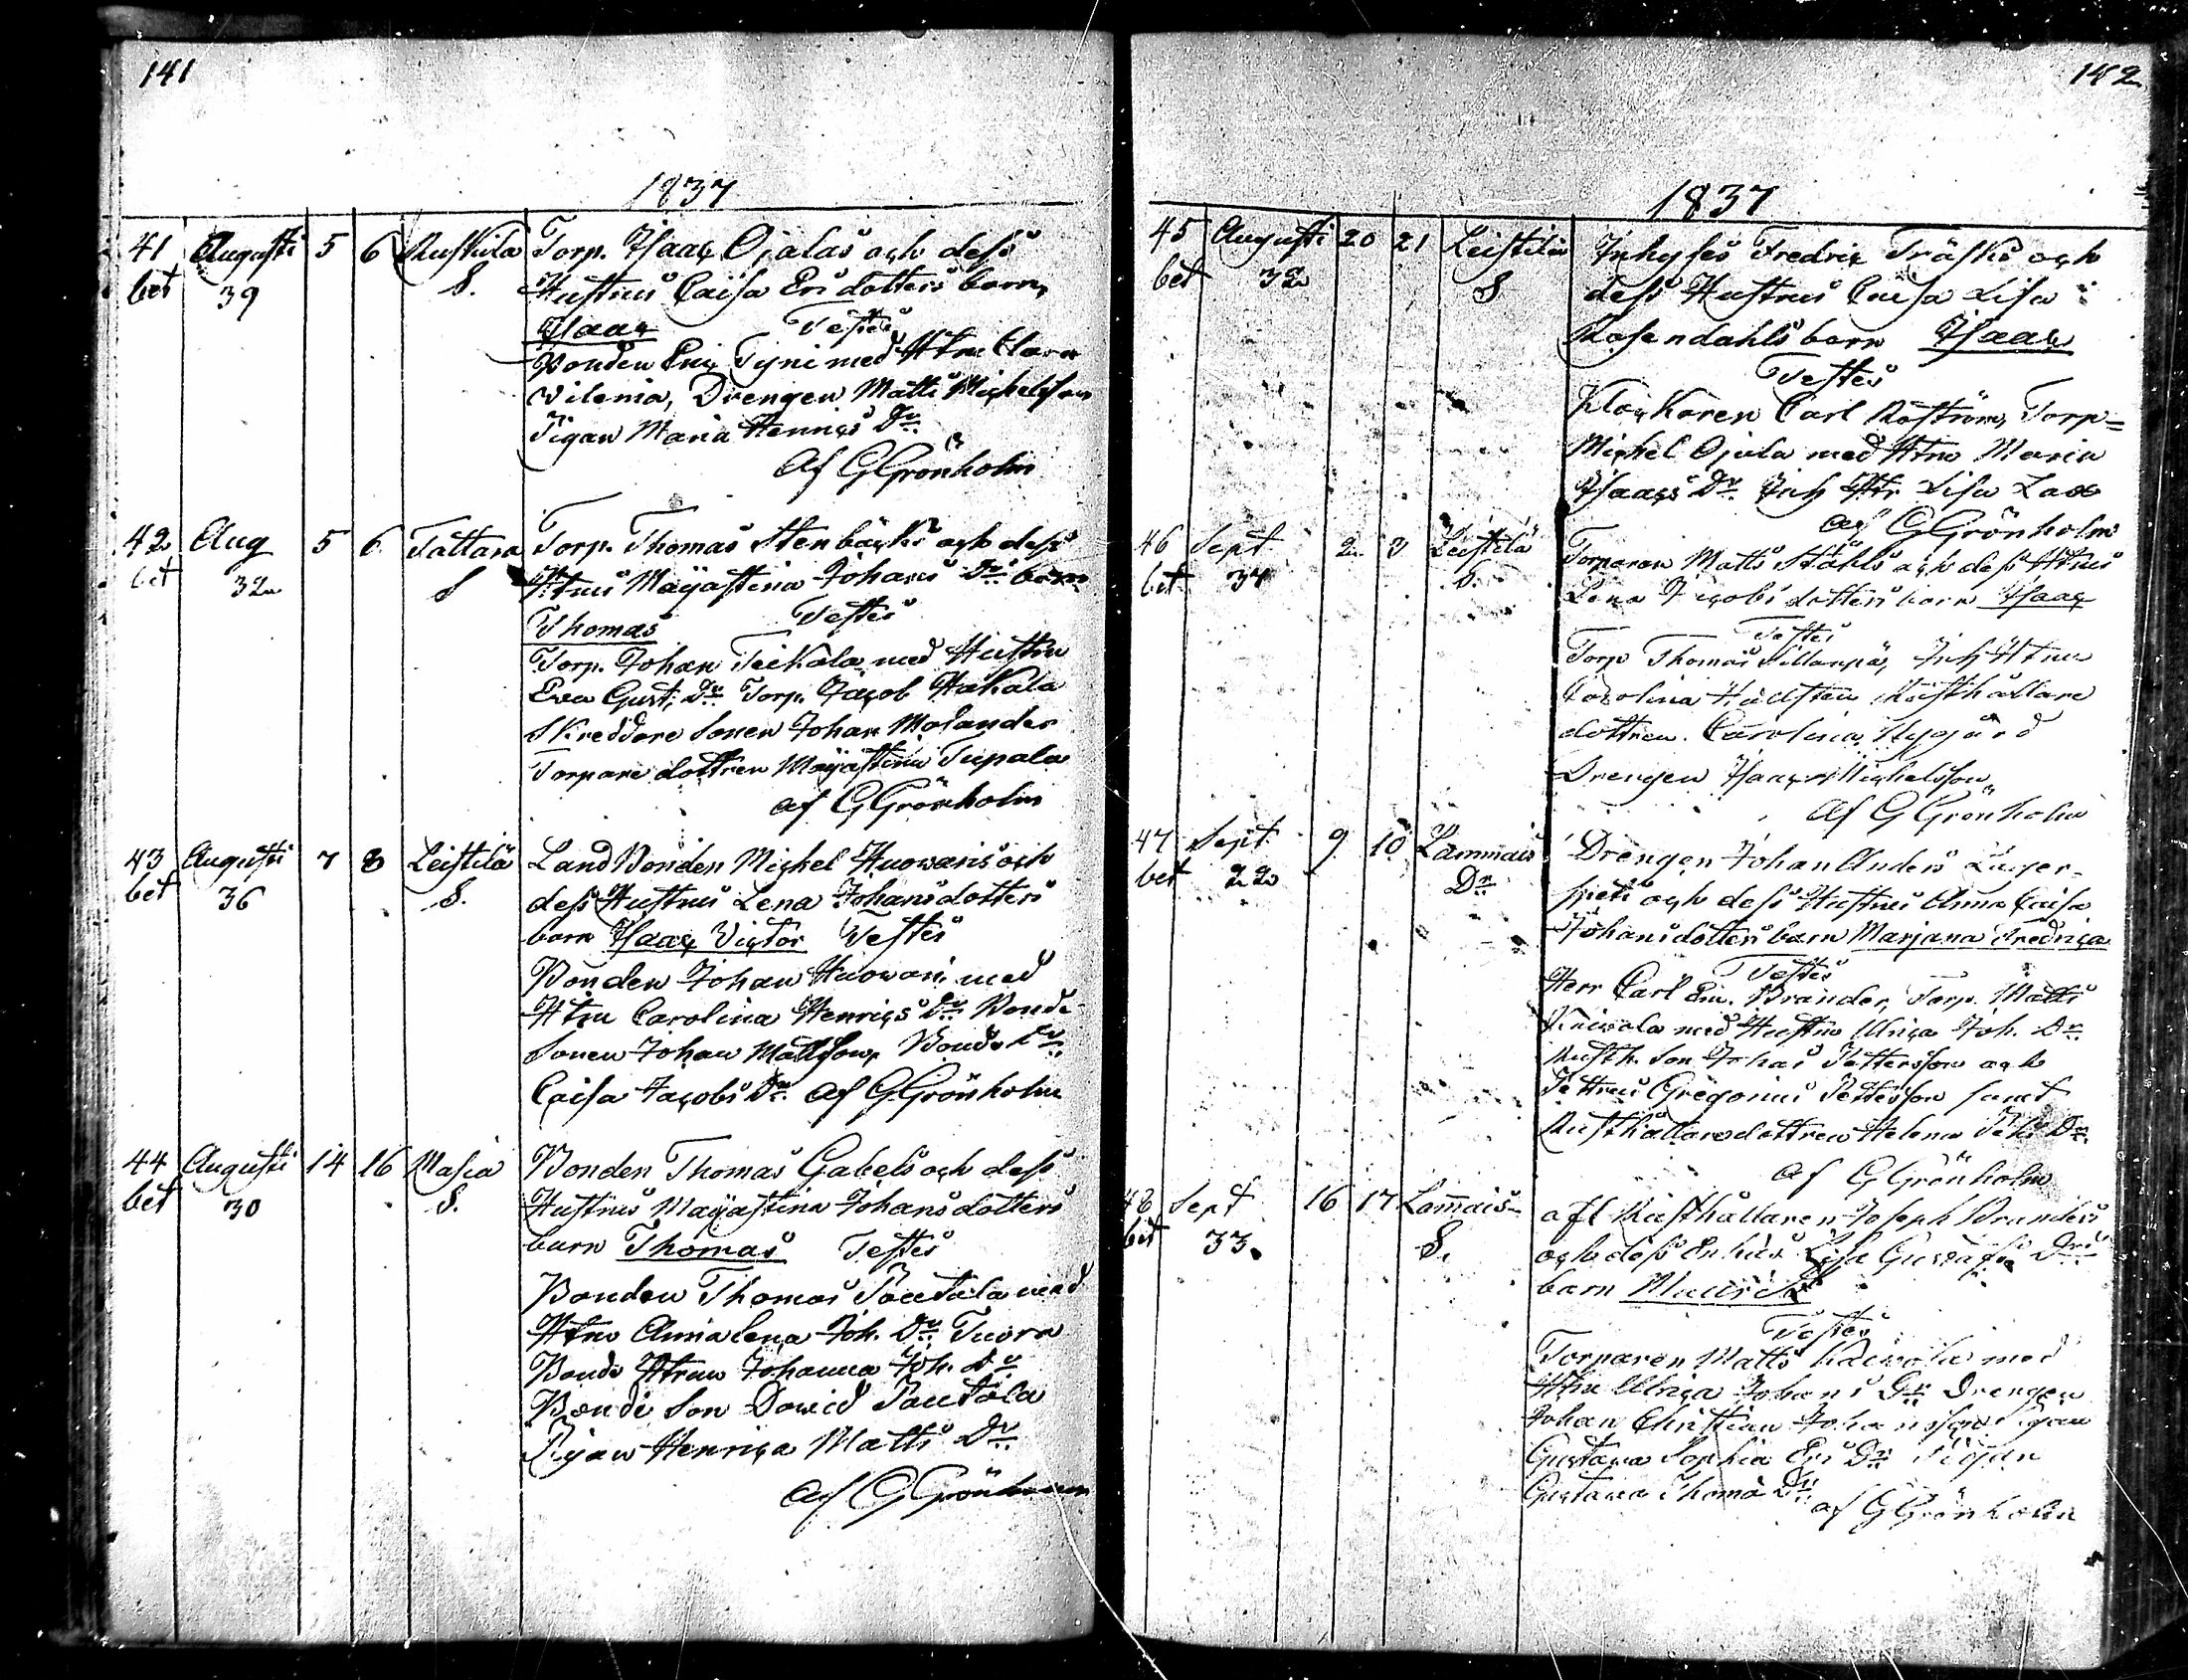 141
1837
41 Augusti 5 6 Ruskila Torp. Isaac Ojalas och dess
bet 39 S. Hustrus Caisa Ers dotters barn,
Isaac Testes
Bonden Eric Tyni med Htru Clara
Vilenia, Drengen Matts Michelsson
Pigan Maria Henrics Dr.
Af G Grönholm
42 Aug 5 6 Tattara Torp. Thomas Stenbäcks och dess
bet 32 S Htrus Majastina Johans Drs barn
Thomas Testes
Torp. Johan Teikala med Hustru
Eva Gust. Dr Torp. Jacob Hakala
Skreddare Sonen Johan Molander
Torpare dottren Majastina Tupala
af G Grönholm
43 Augusti 7 8 Leistilä Land Bonden Michel Huovaris och
bet 36 S. dess Hustrus Lena Johansdotters
barn Isaac Victor Testes
Bonden Johan Huovari med
Htru Carolina Henrics Dr Bonde
Sonen Johan Mattsson, Bonde Dr
Caisa Jacobs Dr. af G Grönholm
44 Augusti 14 16 Masia Bonden Thomas Gabels och dess
bet 30 S. Hustrus Majastina Johansdotters
barn Thomas Testes
Bonden Thomas Pautola med
Htru Annalena Joh. Dr. Tuorn
Bonde Htrun Johanna Joh. Dr
Bonde Son David Pautola
Pigan Henrica Matts Dr.
af G Grönholm
142
1837
45 Augusti 20 21 Leistilä Inhyses Fredric Träsks och
bet 32 S dess Hustrus Caisa Lisa
Rosendahls barn Isaac
Testes
Klockaren Carl Roström, Torp=
Michel Ojala med Htru Maria
Isaacs Dr. Inh Htr Lisa Lax
af G Grönholm
46 Sept 2 3 Leistilä Torparen Matts Ståhls och dess Htrus
bet 34 S. Lena Jacobs dotters barn Isaac
Testes
Torp Thomas Sillanpä, Inh Htru
Carolina Rusthållare
dottren. Carolina Nygård
Drengen Isaac Michelsson
Af G Grönholm
47 Sept 9 10 Lammais Drengen Johan Anders
bet 22 Dr och dess Hustrus Anna Caisa
Johansdotters barn Marjana Fredrica
Testes
Herr Carl Em. Brander, Torp. Matts
med Hustru Ulrica Joh. Dr.
Rusth. Son Johas Pettersson och
Gregorius Pettersson samt
Rusthållaredottren Helena Dr.
af G Grönholm
48 Sept 16 17 Lam̄ais afl Rusthållaren Joseph Branders
bet 33. S. och dess Enkas Lisa Gustafs Drs
barn
Testes
Torparen Matts med
Htru Ulrica Johans Dr. Drengen
Johan Christian Johansson Pigan
Gustava Sophia Ers Dr. Pigan
Gustava Thoma Dr.
af G Grönholm